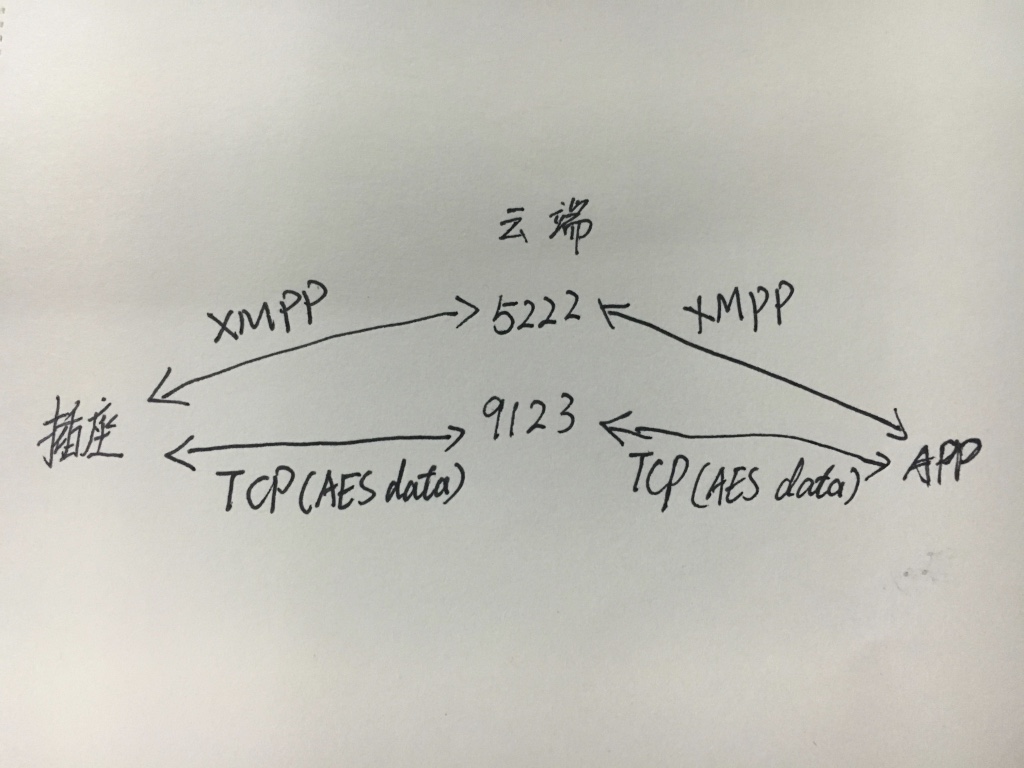 云端
XMPP 5222 XMPP
插座 9123 APP
TCP(AES data) TCP(AES data)